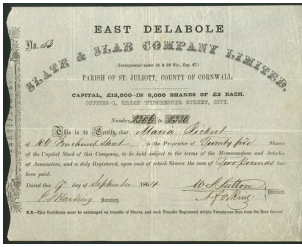 EAST DELABOLE
No. 53
SLATE & SLAB COMPANY LIMITED,
(Incorporated under 25 & 26 Vic., Cap. 67.)
PARISH OF ST. JULIOTT, COUNTY OF CORNWALL.
CAPITAL, £12,000—IN 6,000 SHARES OF £2 EACH.
OFFICES—1, GREAT WINCHESTER STREET, CITY.
Numbers to
This is to Certify, that Maria
of Street is the Proprietor of Twenty five Shares
of the Capital Stock of this Company, to be held subject to the terms of the Memorandum and Articles
of Association, and is duly Registered, upon each of which Shares the sum of Two pounds has
been paid.
Dated this 9th day of September 1864
Directors.
Secretary.
N.B.—This Certificate must be exchanged on transfer of Shares, and each Transfer Registered within Twenty-one days from the Date thereof